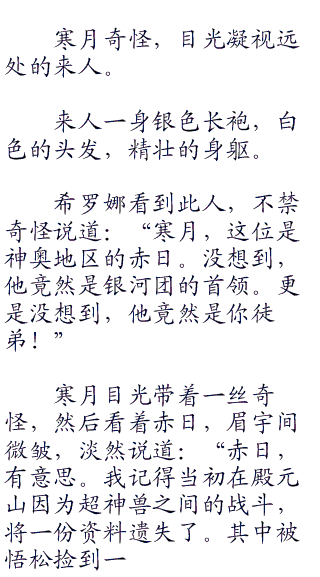 寒月奇怪，目光凝视远
处的来人。
来人一身银色长袍，白
色的头发，精壮的身躯。
希罗娜看到此人，不禁
奇怪说道：“寒月，这位是
神奥地区的赤日。没想到，
他竟然是银河团的首领。更
是没想到，他竟然是你徒
弟！”
寒月目光带着一丝奇
怪，然后看着赤日，眉宇间
微皱，淡然说道：“赤日，
有意思。我记得当初在殿元
山因为超神兽之间的战斗，
将一份资料遗失了。其中被
悟松捡到一